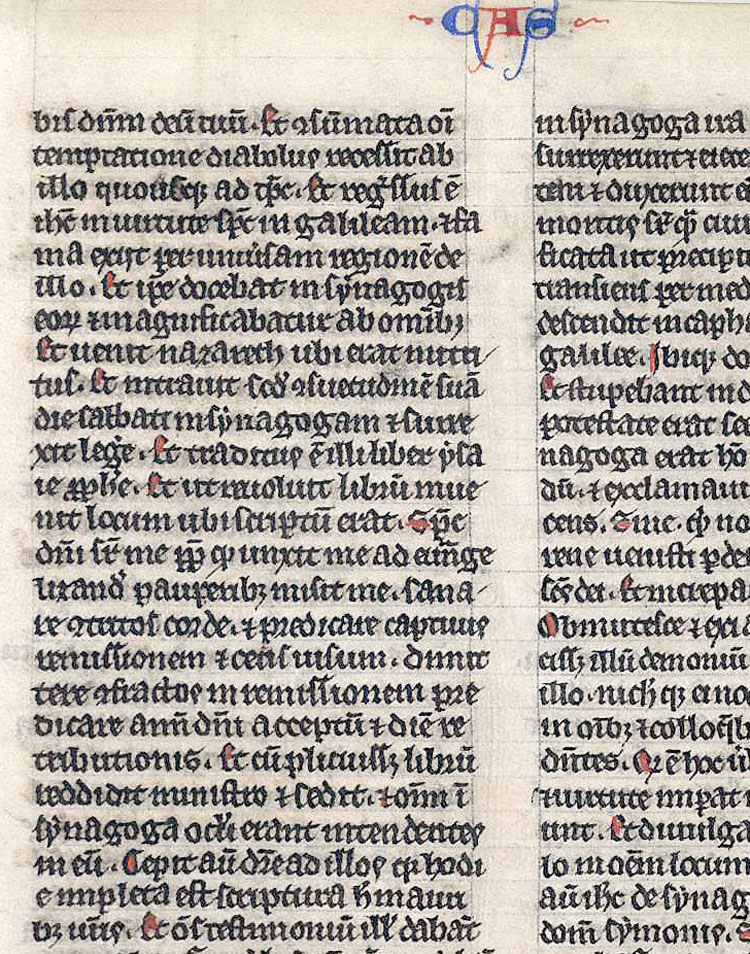 CAS
bis dn̄m deū tuū. Et ꝯsūmata oī
temptatione diabolus recessit ab
illo quousq; ad tp̄c. Et regss̄us ē
ih̄c in uirtute sp̄c in galileam. ⁊ fa
ma exiit per uniūsam regionē de
illo. Et ip̄e docebat in synagogis
eoꝝ ⁊ magnificabatur ab omib;
Et uenit nazareth ubi erat nutri
tus. Et intrauit scd̄ ꝯsuetudinē suā
die sabbati in synagogam ⁊ surre
xit leḡe. Et traditus ē illi liber ysa
ie ꝓphē. Et ut reuoluit librū inue
nit locum ubi scriptū erat. Sp̄c
dn̄i sr̄ me ꝓp̄ qͥ unxit me ad euāge
lizand̄ pauperib; misit me. sana
re ꝯtritos corde. ⁊ predicare captiuis
remissionem ⁊ cecis uisum. dimit
tere ꝯfractos in remissionem pre
dicare ann̄ dn̄i acceptū ⁊ diē re
tributionis. Et cū plicuiss; librū
reddidit ministro ⁊ sedit. ⁊ oīm ī
synagoga oc̄li erant intendentes
in eū. Cepit aū dr̄e ad illos qͥ hodi
e impleta est scriptura h̄ in auri
b; ur̄is. Et ōs testimoniū ill̄ dabāt
in synagoga ira
surrexerunt ⁊ eiece
⁊ duxerunt
montis sr̄ qͥ ciui
ficata ut precipit
transiens per med
descendit in caph
galilee. Ibiqꝫ do
Et stupebant in d
potestate erat
nagoga erat hō
dū. ⁊ exclamaui
cens. Sine. qͥ no
rene uenisti ꝑde
sc̄s dei. Et increpa
Obmutesce ⁊ exi
eiss; illū demoniū
illo. nichq; ei no
in oīb; ⁊ colloq̄b
dn̄tes. Qͥ ē hoc
⁊ uirtute imp̄at
unt. Et diuulga
lo in oēm locum
aū ih̄c de synag
domū symonis.